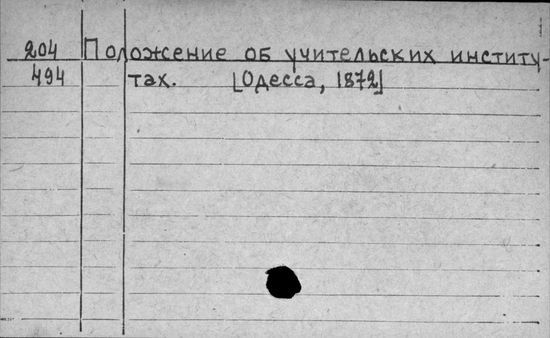 204 Положение об учительских институ-
494 тах. [Одесса, 1872]